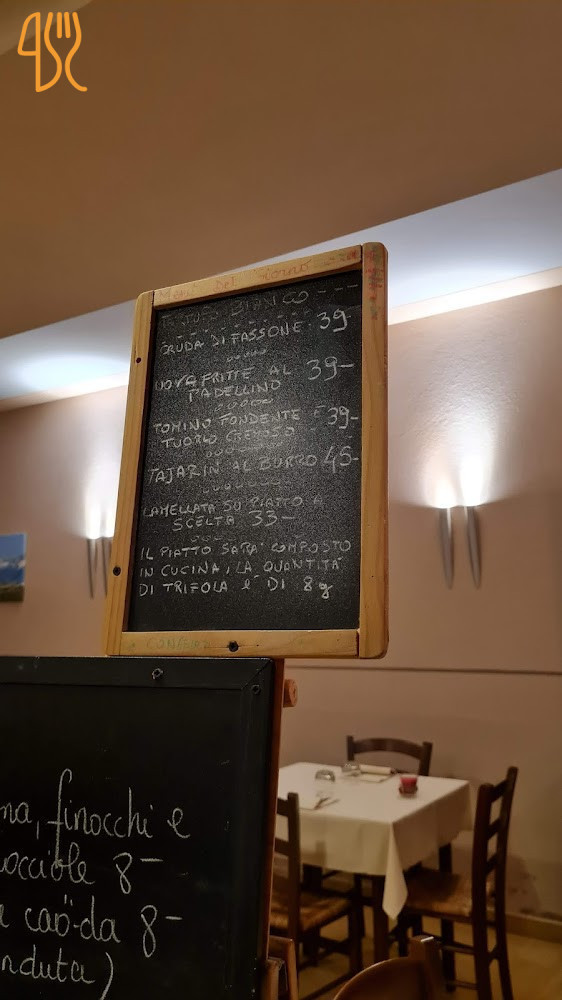 Menù Del Giorno
TARTUFO BIANCO
CRUDA DI FASSONE 39-
UOVA FRITTE AL 39-
PADELLINO
TOMINO FONDENTE E 39-
TUORLO CREMOSO
TAJARIN AL BURRO 45-
LAMELLATA SU PIATTO A
SCELTA 33-
IL PIATTO SARA' COMPOSTO
IN CUCINA, LA QUANTITA'
DI TRIFOLA E' DI 8g
na, finocchi e
occiole 8-
caö-da 8-
nduta)